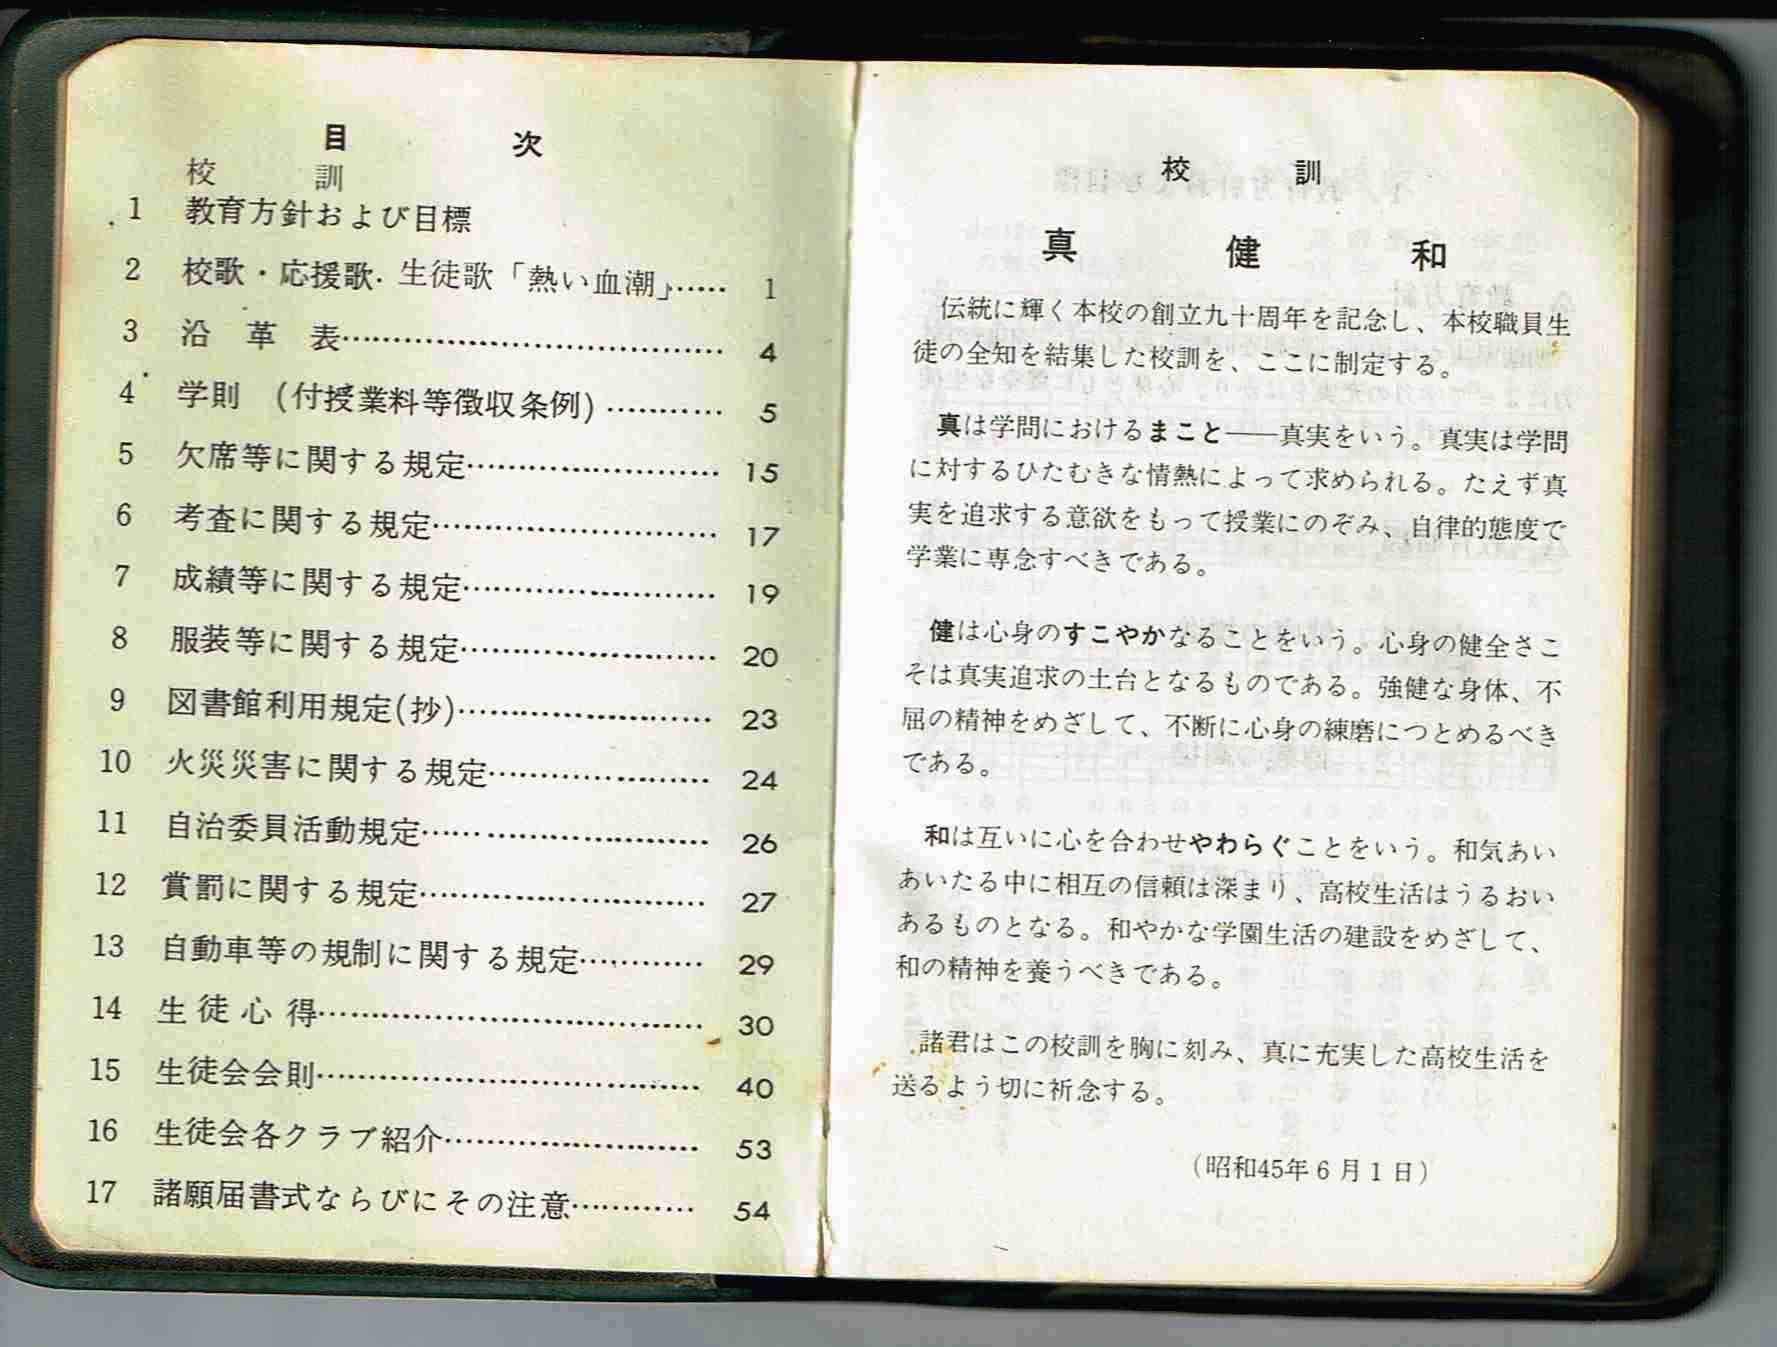 目　次
校　訓
1 教育方針および目標
2 校歌・応援歌・生徒歌「熱い血潮」…… 1
3 沿　革　表…………………………… 4
4 学則　(付授業料等徴収条例)………… 5
5 欠席等に関する規定…………………… 15
6 考査に関する規定……………………… 17
7 成績等に関する規定…………………… 19
8 服装等に関する規定…………………… 20
9 図書館利用規定(抄)…………………… 23
10 火災災害に関する規定………………… 24
11 自治委員活動規定……………………… 26
12 賞罰に関する規定……………………… 27
13 自動車等の規制に関する規定………… 29
14 生徒心得………………………………… 30
15 生徒会会則……………………………… 40
16 生徒会各クラブ紹介…………………… 53
17 諸願届書式ならびにその注意………… 54
校　訓
真　健　和
伝統に輝く本校の創立九十周年を記念し、本校職員生
徒の全知を結集した校訓を、ここに制定する。
真は学問におけるまこと――真実をいう。真実は学問
に対するひたむきな情熱によって求められる。たえず真
実を追求する意欲をもって授業にのぞみ、自律的態度で
学業に専念すべきである。
健は心身のすこやかなることをいう。心身の健全さこ
そは真実追求の土台となるものである。強健な身体、不
屈の精神をめざして、不断に心身の練磨につとめるべき
である。
和は互いに心を合わせやわらぐことをいう。和気あい
あいたる中に相互の信頼は深まり、高校生活はうるおい
あるものとなる。和やかな学園生活の建設をめざして、
和の精神を養うべきである。
諸君はこの校訓を胸に刻み、真に充実した高校生活を
送るよう切に祈念する。
（昭和45年６月１日）